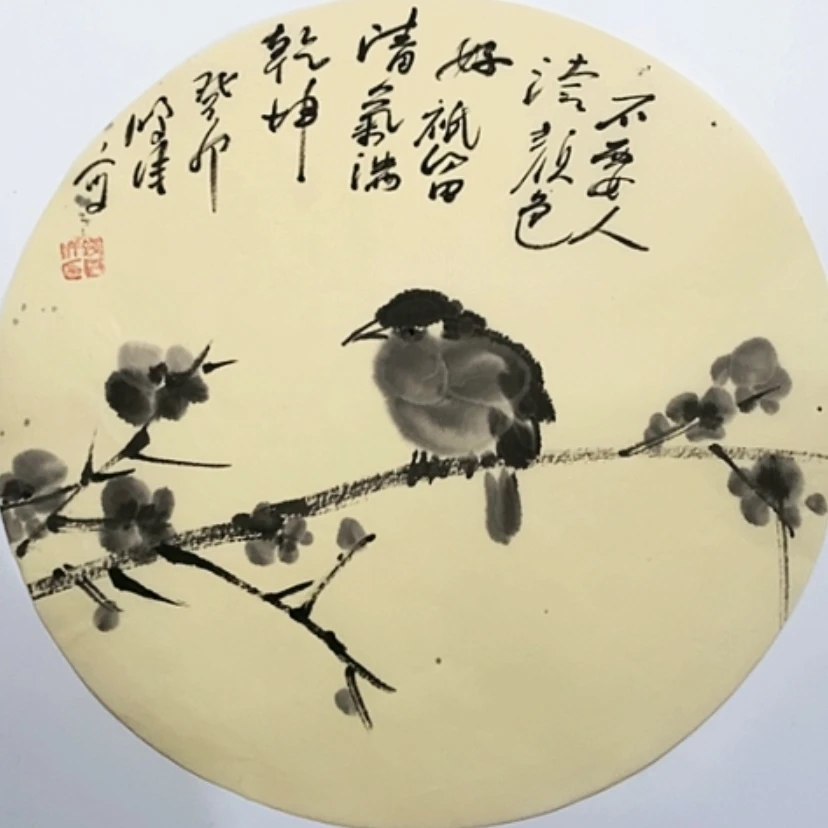 不要人
誇顏色
好祇留
清氣滿
乾坤
癸卯
寫